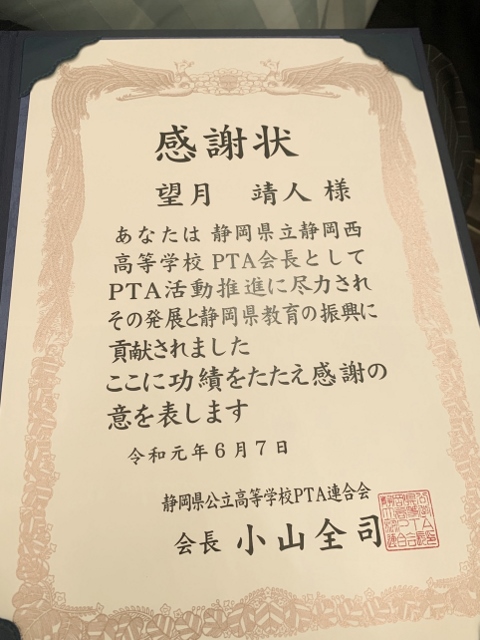 感謝状
望月 靖人 様
あなたは 静岡県立静岡西
高等学校 PTA会長として
PTA活動推進に尽力され
その発展と静岡県教育の振興に
貢献されました
ここに功績をたたえ感謝の
意を表します
令和元年6月7日
静岡県公立高等学校PTA連合会
会長 小山全司